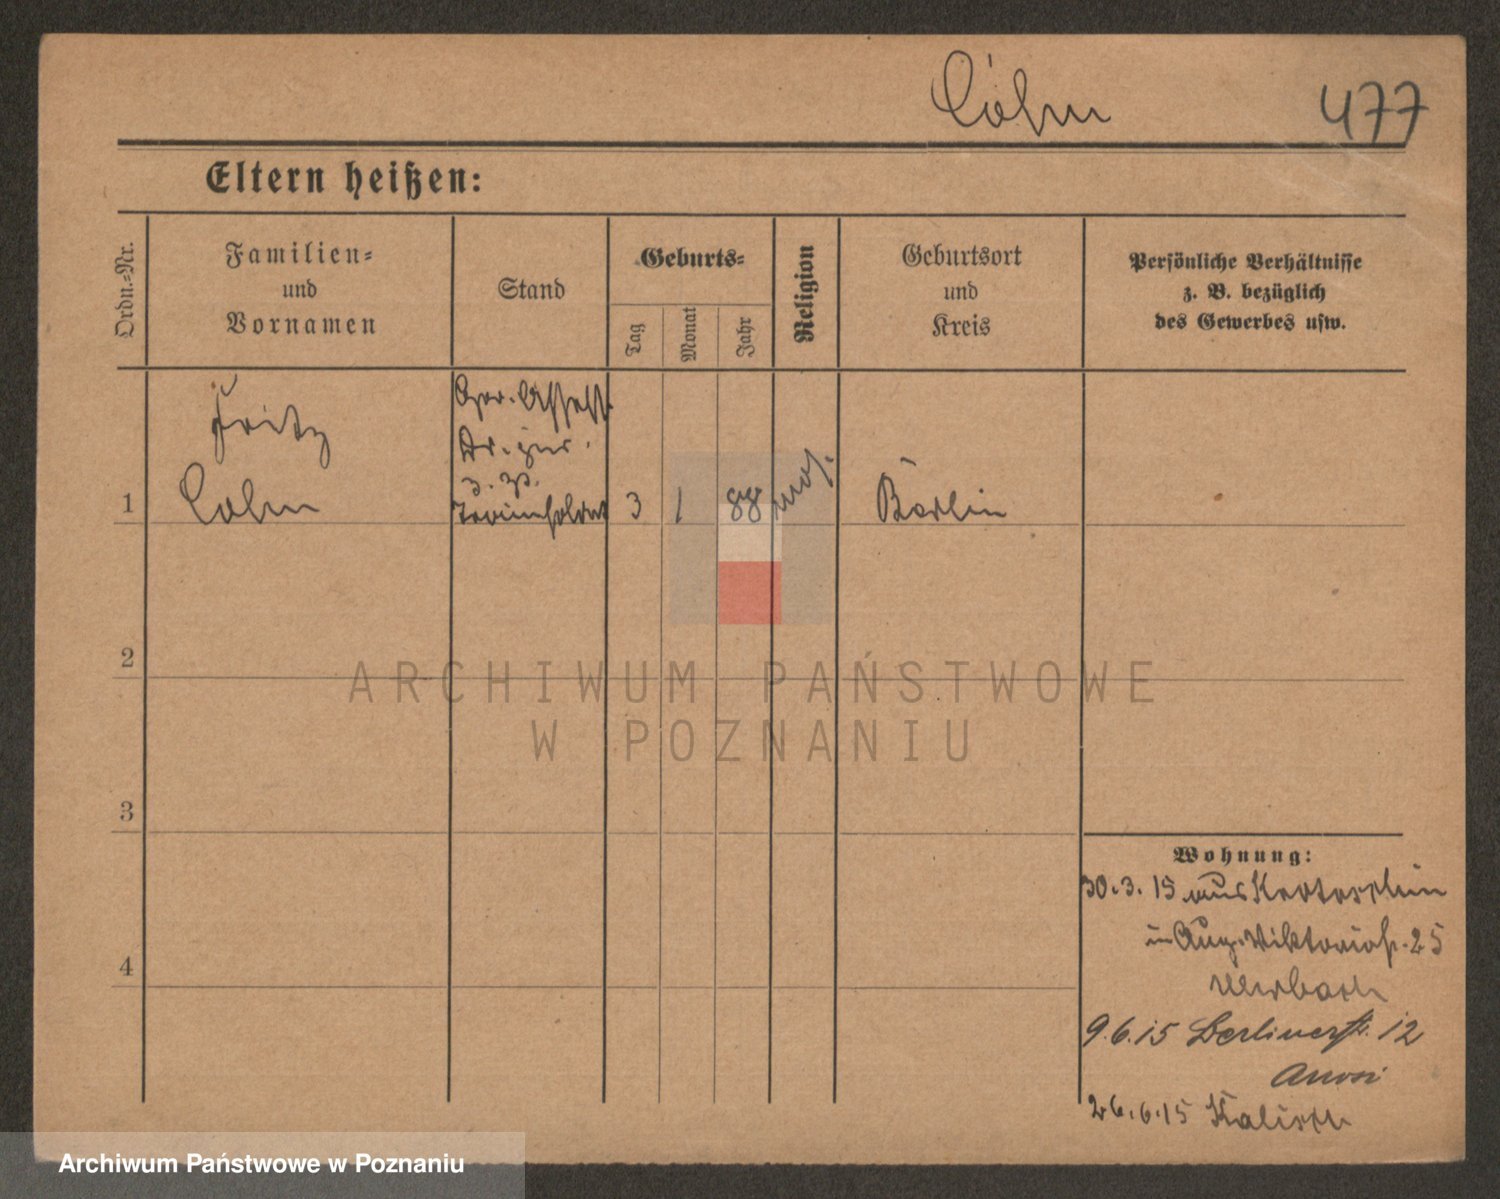 Cohn 477
Eltern heißen:
Ordn.-Nr.
Familien-
und
Vornamen
Stand
Geburts-
Tag
Monat
Jahr
Religion
Geburtsort
und
Kreis
Persönliche Verhältnisse
z. B. bezüglich
des Gewerbes usw.
1
Fritz
Cohn
Dr. jur.
z. Zt.
3 1 88 mos.
Berlin
2
3
4
Wohnung:
30.3.15 aus Krotoschin
in Aug. Viktoriastr. 25
9.6.15 Berlinerstr. 12
26.6.15 Kalisch
ARCHIWUM PAŃSTWOWE
W POZNANIU
Archiwum Państwowe w Poznaniu